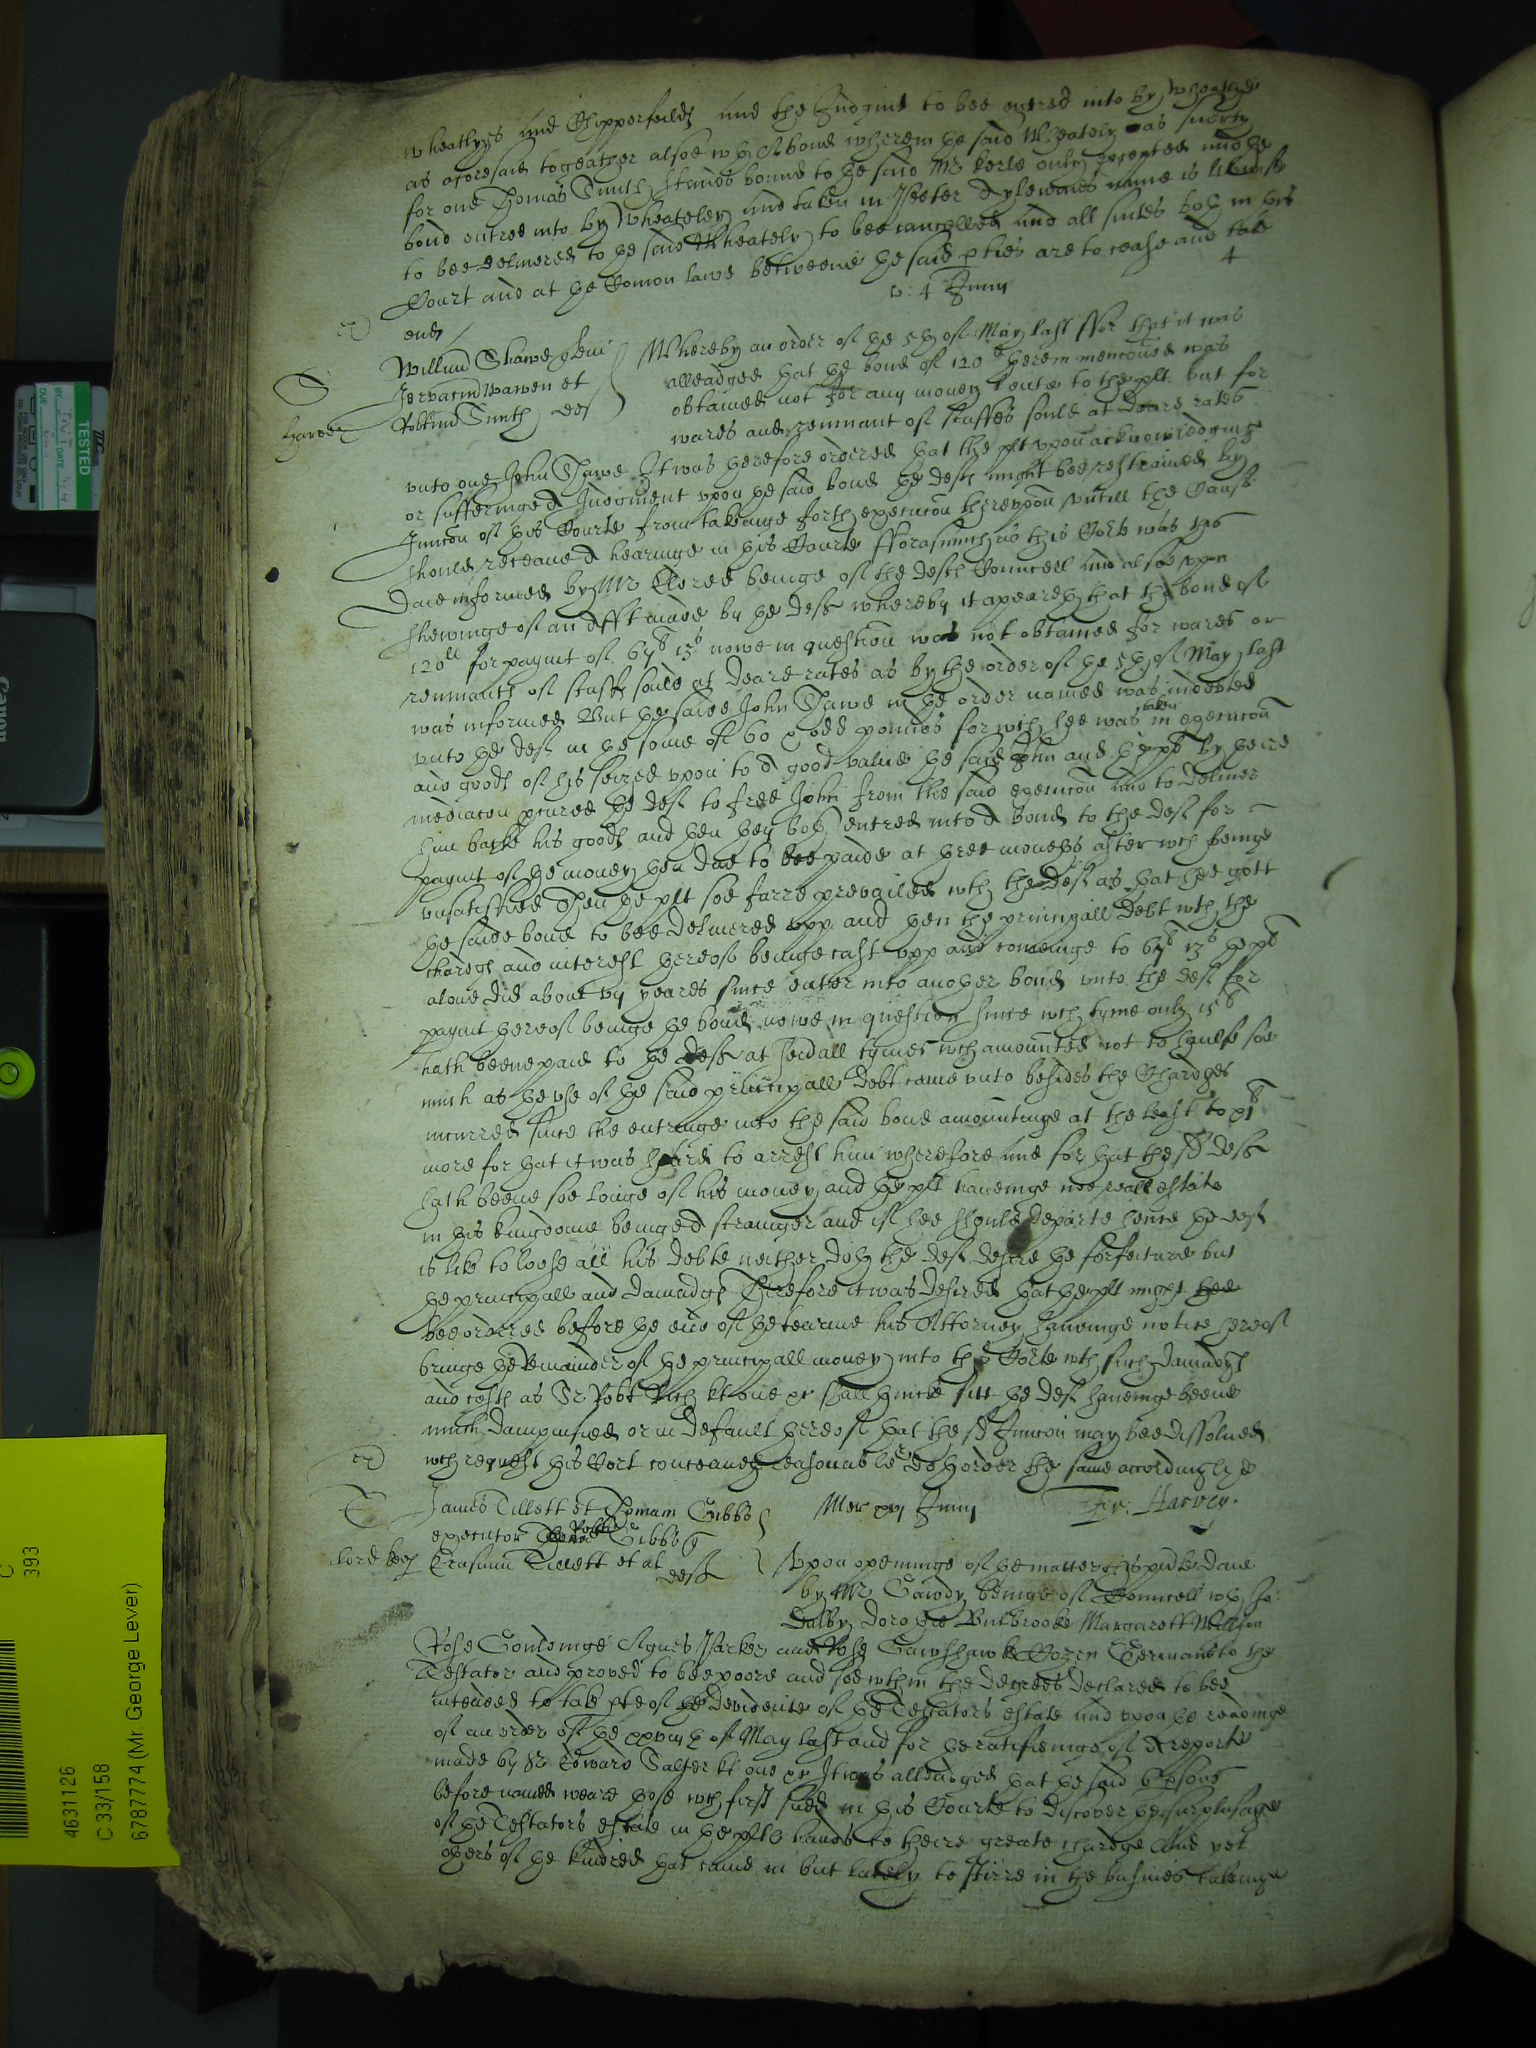 wheatlyes and Chipperfeilds and the Judgmt to bee entred into by Wheatlye
as aforesaid togeather alsoe wth A bond wherein the said Wheately was suerty
for one Thomas Smith stands bound to the said Mr Kerle only excepted and the
bond entred into by Wheateley and taken in Peeter name is likewise
to bee delivered to the said Wheately to bee cancelled and all suites both in this
Court and at the Comon lawe betweene the said pties are to cease and take
end
4 Junii
4
S
Willm Shawe
Jervacm Warren et
Robtum Smith def
Harvey
Whereby an order of the 5th of May last ffor that it was
alleadged that the bond of 120 li therein menconed was
obtained not for any money lent to the plt but for
wares and remnant of stuffes sould at deare rates
unto one John Shawe It was therefore ordered that the plt upon acknowledging
or sufferinge A Judgment upon the said bond the deft might bee restrained by
Iniuncon of this Courte from takeinge forth execucon thereupon untill the Cause
should receave A hearinge in this Courte fforasmuch as this Corte was this
daie informed by Mr Clerke beinge of the defts Councell and alsoe upon
shewinge of an Afft made by the deft whereby it apeareth that the bond of
120li for paymt of 67li 13s nowe in question was not obtained for wares or
remnants of stuffe sould at deare rates as by the order of the 5th of May last
was informed But the saide John Shawe in the order named was indebted
unto the deft in the some of 60 & odd pounds for wch hee was taken in execucon
and goods of his seized upon to A good value the said John and the plt by theire
mediacon pcured the deft to free John from the said execucon and to deliver
him backe his goods and then they both entred into A bond to the deft for
paymt of the money then due to bee paide at three moneths after wch beinge
unsatisfied Then the plt soe farre prevailed wth the deft as that hee gott
the saide bond to bee delivered upp and then the principall Debt wth the
chardges and interest thereof beinge cast upp and comeinge to 67li 13s the plt
alone did about vij yeares since enter into another bond unto the deft for
paymt thereof beinge the bond nowe in question since wch tyme only 15li
hath beene paid to the deft at severall tymes wch amounted not to halfe soe
much as the use of the said principall Debt came unto besides the Chardges
incurred since the entringe into the said bond amountinge at the least to xli
more for that it was hard to arrest him wherefore and for that the sd deft
hath beene soe longe of his money and the plt haveinge noe reall estate
in this kingdome beinge A stranger and if hee should departe hence the deft
is like to loose all his debte neither doth the deft desire the forfeiture but
the principall and damadge Therefore it was desired that the plt might
bee ordered before the end of the tearme his Attorney haveinge notice thereof
bringe the Remainder of the principall money into this Corte wth such damadge
and costs as Sr Robt Rich kt one &c shall thincke fitt the deft haveinge beene
much dampnified or in default thereof that the sd Iniuncon may bee dissolved
wch request this Cort conceaveth reasonable & doth order the same accordingly
Mer xvj Junii
fr: Harvey.
T
James Tillett et Thomam Gibbs
executor Robti Gibbs
Erasmm Tillett et al
deft
lord keep
Upon openinge of the matter this psente daie
by Mr Gawdy beinge of Councell wth Jo:
Dalby Dorothie Bulbrooke Margarett Wilson
Rose Gouldinge Agnes Parker and Rose Cozen Germans to the
Testator and proved to bee poore and soe wthin the degrees declared to bee
intended to take pte of the devidente of the Testators estate and upon the readinge
of an order of the xxviijth of May last and for the ratifieinge of A reporte
made by Sr Edward Salter kt one &c It was alleadged that the said 6 psons
before named weare those wch first sued in this Courte to discover the surplusage
of the Testators estate in the plts hands to theire greate chardge And yet
others of the kindred that came in but lately to stirre in the busines takeinge
TESTED
DUE
Canon
C
393
4631126
C 33/158
6787774 (Mr. George Lever)